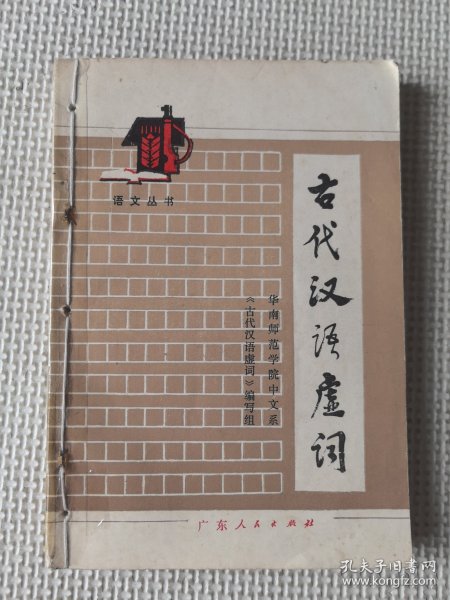 语文丛书
古代汉语虚词
华南师范学院中文系
《古代汉语虚词》编写组
广东人民出版社
孔夫子旧书网
www.kongfz.com